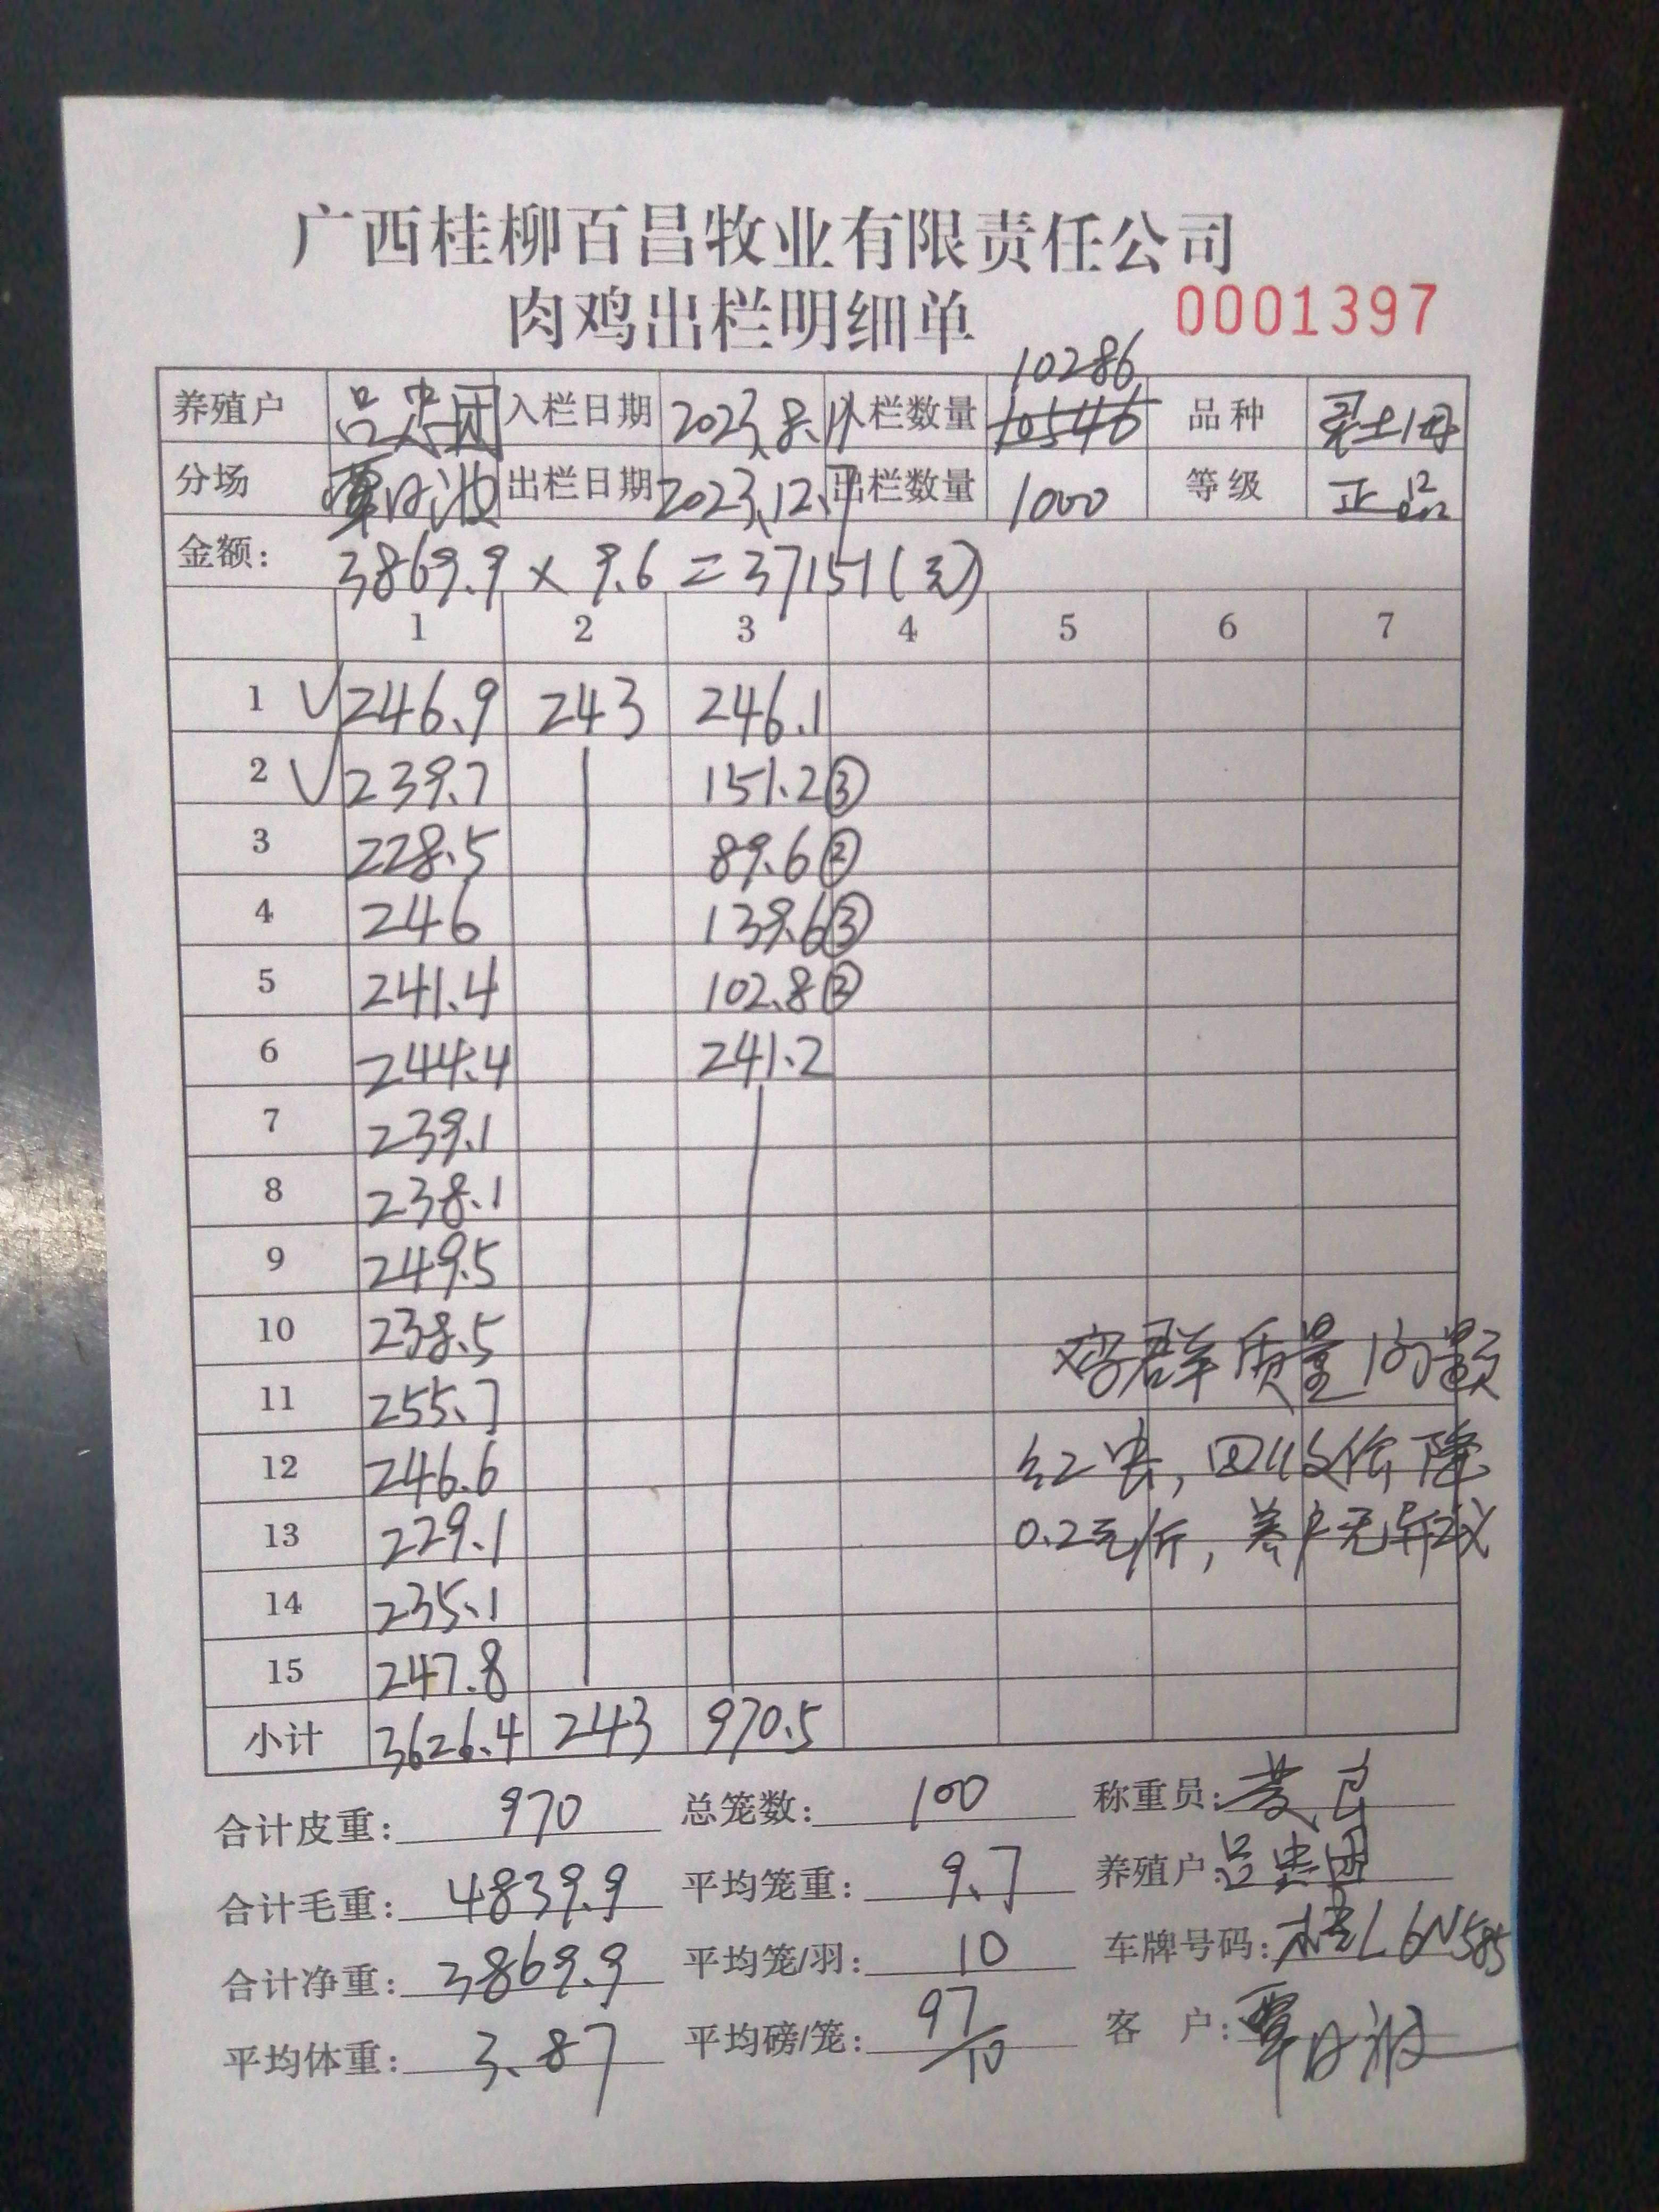 广西桂柳百昌牧业有限责任公司
肉鸡出栏明细单 0001397
10286
养殖户 吕忠团 入栏日期 2023.8. 入栏数量 10546 品种 土1母
分场 覃日波 出栏日期 2023.12.7 出栏数量 1000 等级 正品
金额: 3869.9 × 9.6 = 37151(元)
1 2 3 4 5 6 7
1 √ 246.9 243 246.1
2 √ 239.7 151.2③
3 228.5 89.6②
4 246 139.6③
5 241.4 102.8②
6 244.4 241.2
7 239.1
8 238.1
9 249.5
10 238.5 鸡群质量问题
11 255.7
12 246.6 回收价降
13 229.1 0.2元/斤,养户无异议
14 235.1
15 247.8
小计 3626.4 243 970.5
合计皮重: 970 总笼数: 100 称重员:
合计毛重: 4839.9 平均笼重: 9.7 养殖户: 吕忠团
合计净重: 3869.9 平均笼/羽: 10 车牌号码: 桂L6N585
平均体重: 3.87 平均磅/笼: 97/10 客户: 覃日波